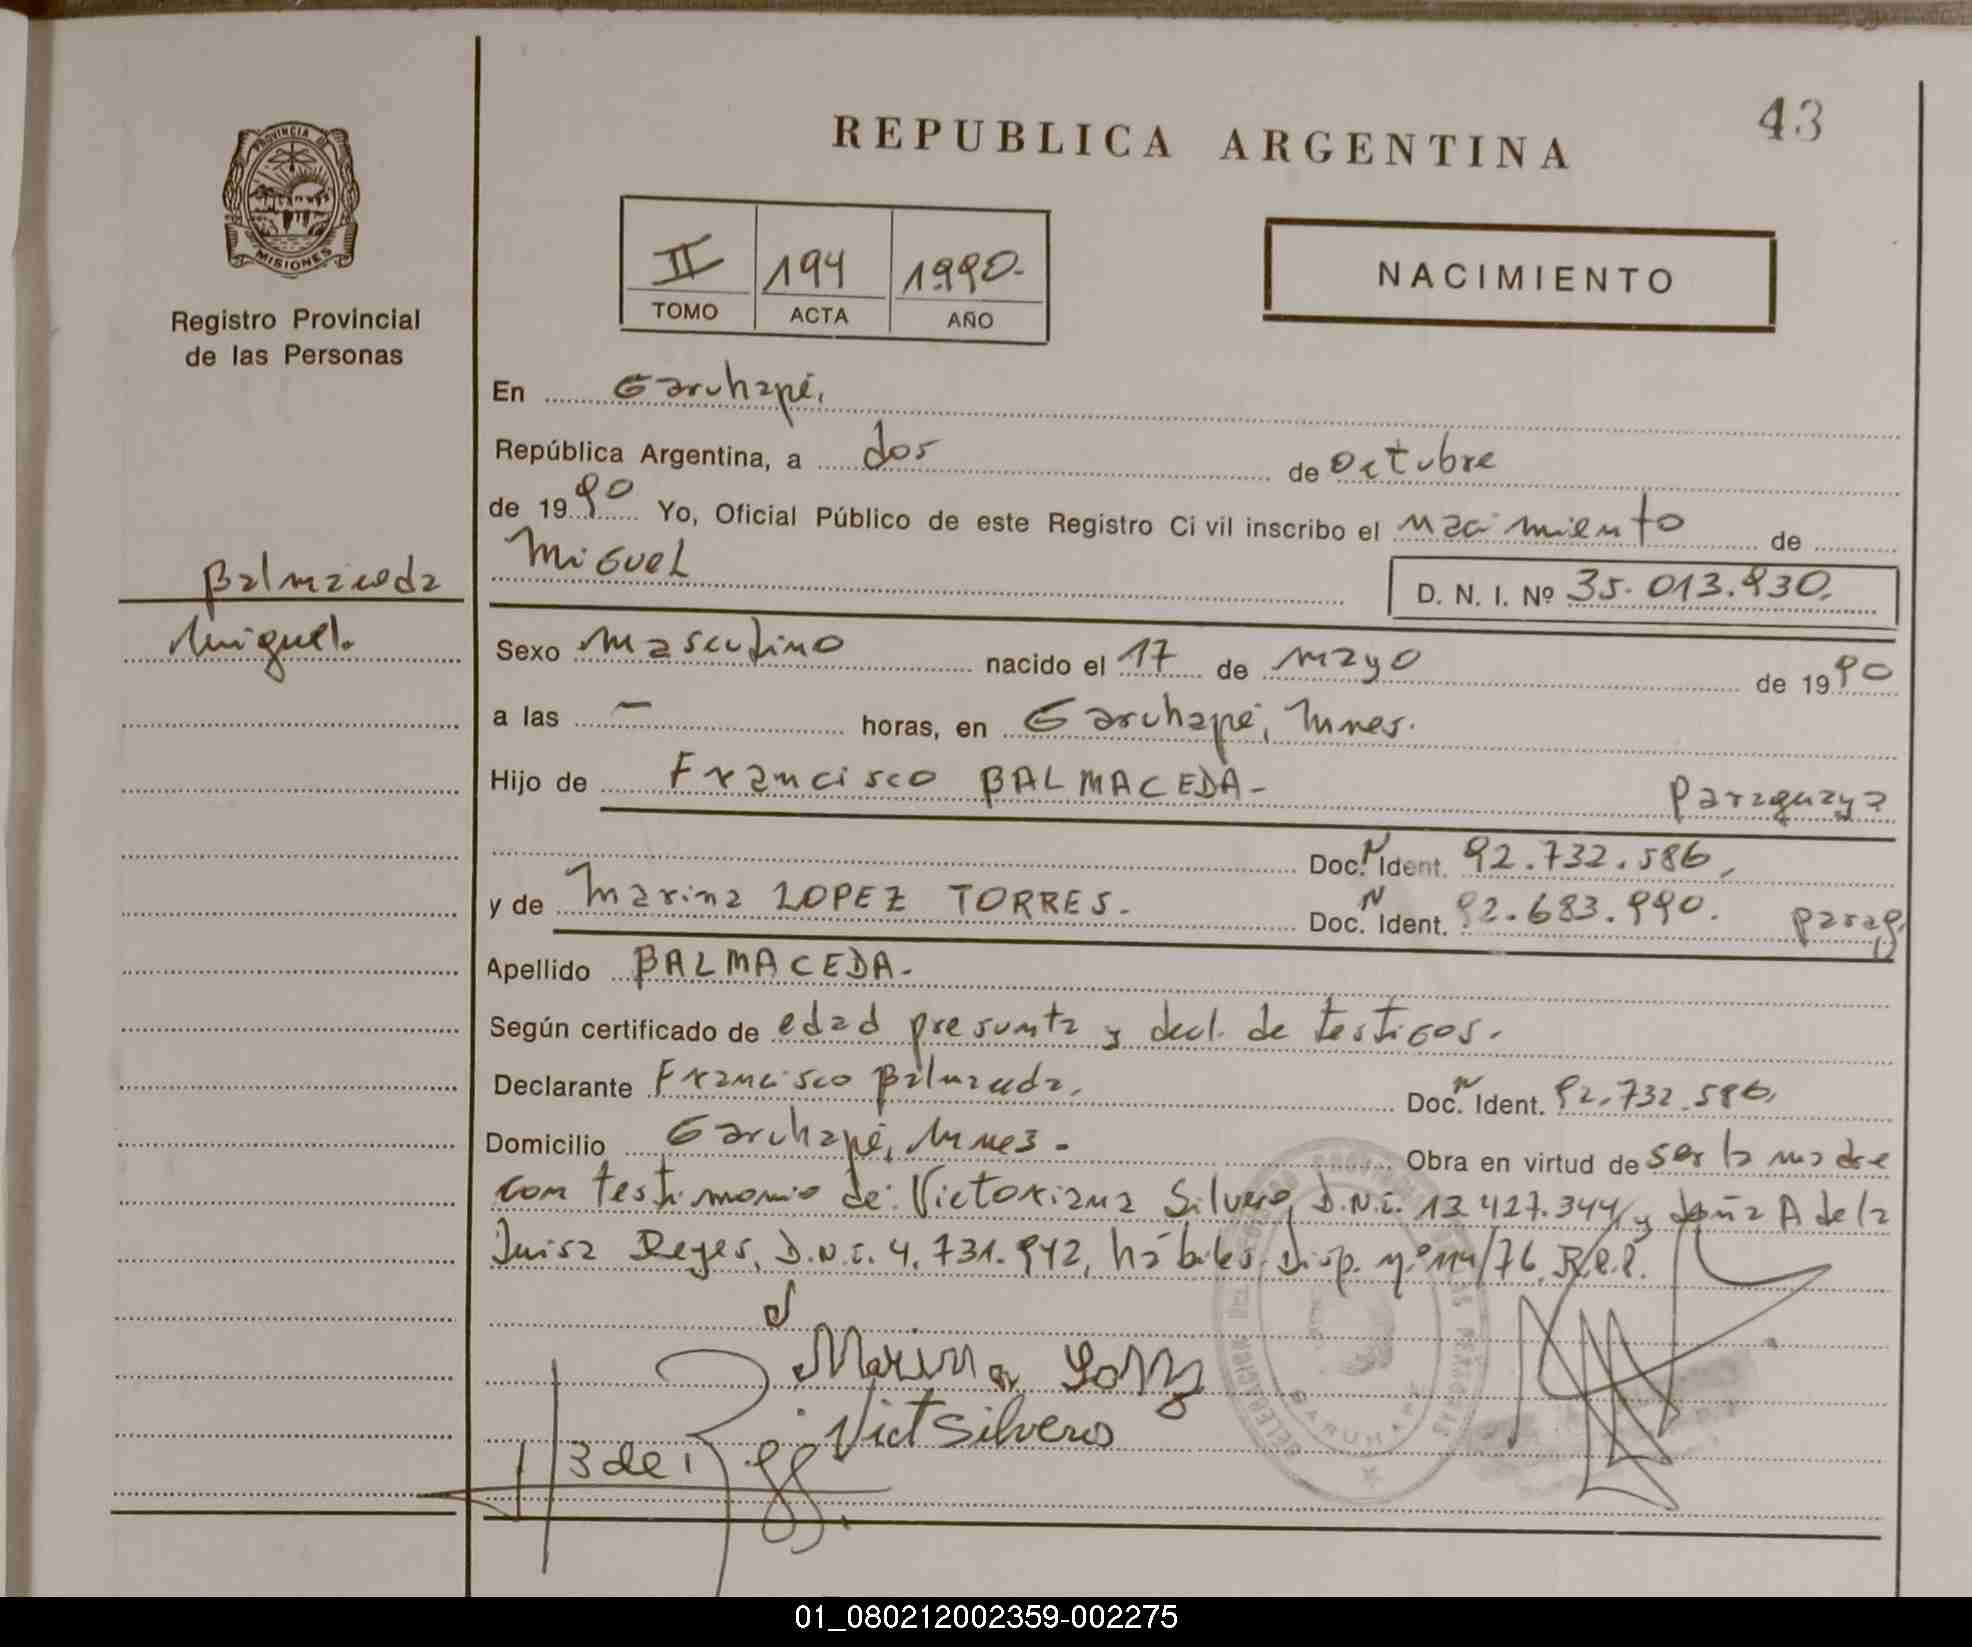 43
REPUBLICA ARGENTINA
PROVINCIA DE
MISIONES
Registro Provincial
de las Personas
II 194 1990.-
TOMO ACTA AÑO
NACIMIENTO
En Garuhapé,
República Argentina, a dos de octubre
de 1990 Yo, Oficial Público de este Registro Civil inscribo el nacimiento de
MiGueL D. N. I. Nº 35.013.930.
Balmaceda
Miguel.
Sexo masculino nacido el 17 de mayo de 1990
a las - horas, en Garuhapé, Mnes.
Hijo de Francisco BALMACEDA- paraguaya
Doc. N Ident. 92.732.586,
y de Marina LOPEZ TORRES. Doc. N Ident. 92.683.990. parag.
Apellido BALMACEDA.
Según certificado de edad presunta y decl. de testigos.
Declarante Francisco Balmaceda, Doc. N Ident. 92.732.586,
Domicilio Garuhapé, Mnes. Obra en virtud de ser la madre
con testimonio de: Victoriana Silvero, D.N.I. 13.427.344 y doña Adela
Luisa Reyes, D.N.I. 4.731.942, hábiles. Disp. nº 114/76. R.P.P.
Marina
Vict Silvero
GARUHAPE
01_080212002359-002275